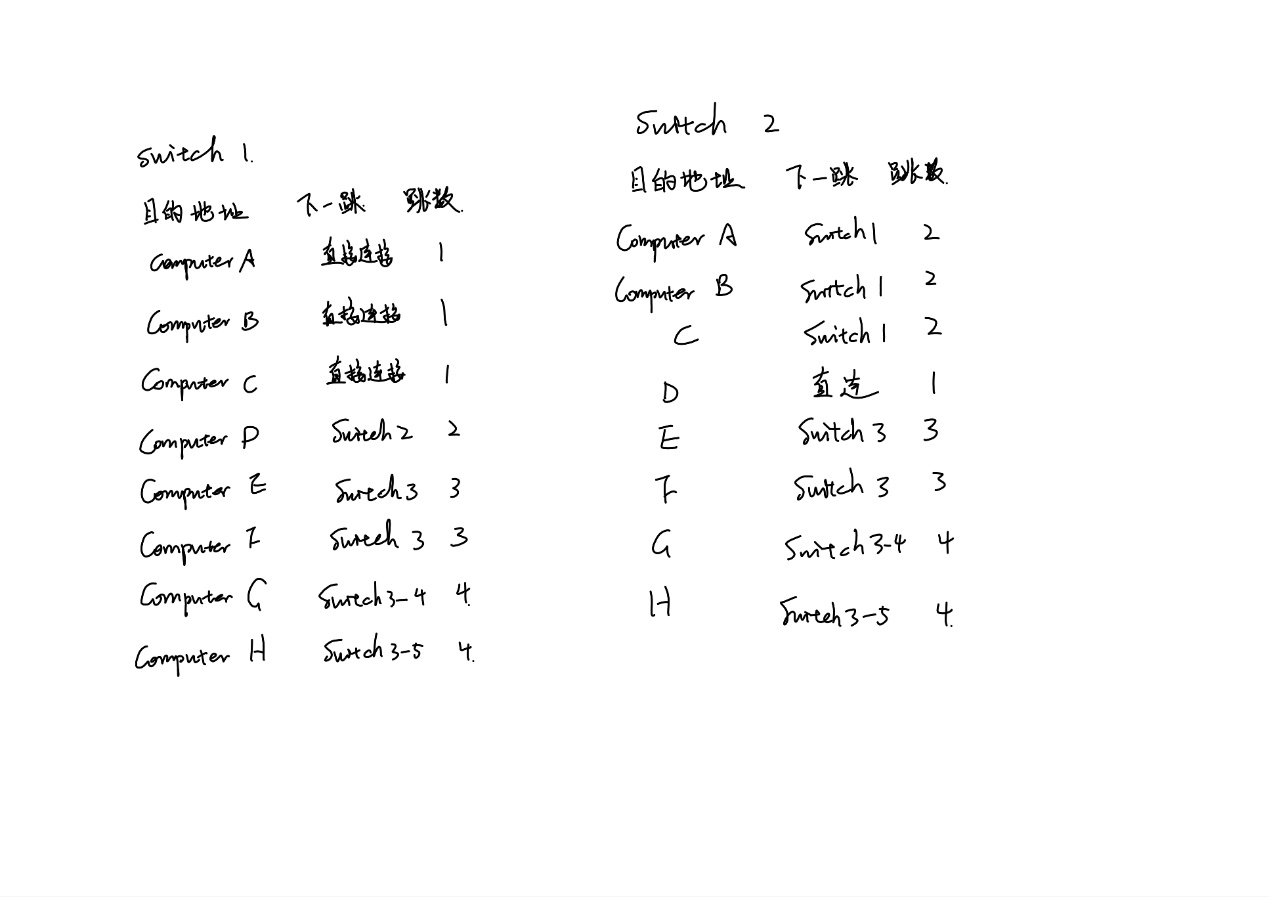 Switch 1.
目的地址 下一跳 跳数.
Computer A 直接连接 1
Computer B 直接连接 1
Computer C 直接连接 1
Computer D Switch 2 2
Computer E Switch 3 3
Computer F Switch 3 3
Computer G Switch 3-4 4.
Computer H Switch 3-5 4.
Switch 2
目的地址 下一跳 跳数.
Computer A Switch 1 2
Computer B Switch 1 2
C Switch 1 2
D 直连 1
E Switch 3 3
F Switch 3 3
G Switch 3-4 4
H Switch 3-5 4.